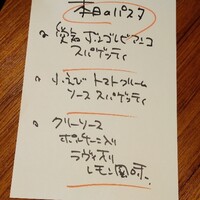 本日のパスタ
ボンゴレビアンコ
スパゲッティ
小えび トマトクリーム
ソース スパゲッティ
クリームソース
ポルチーニ入り
ラヴィオリ
レモン風味